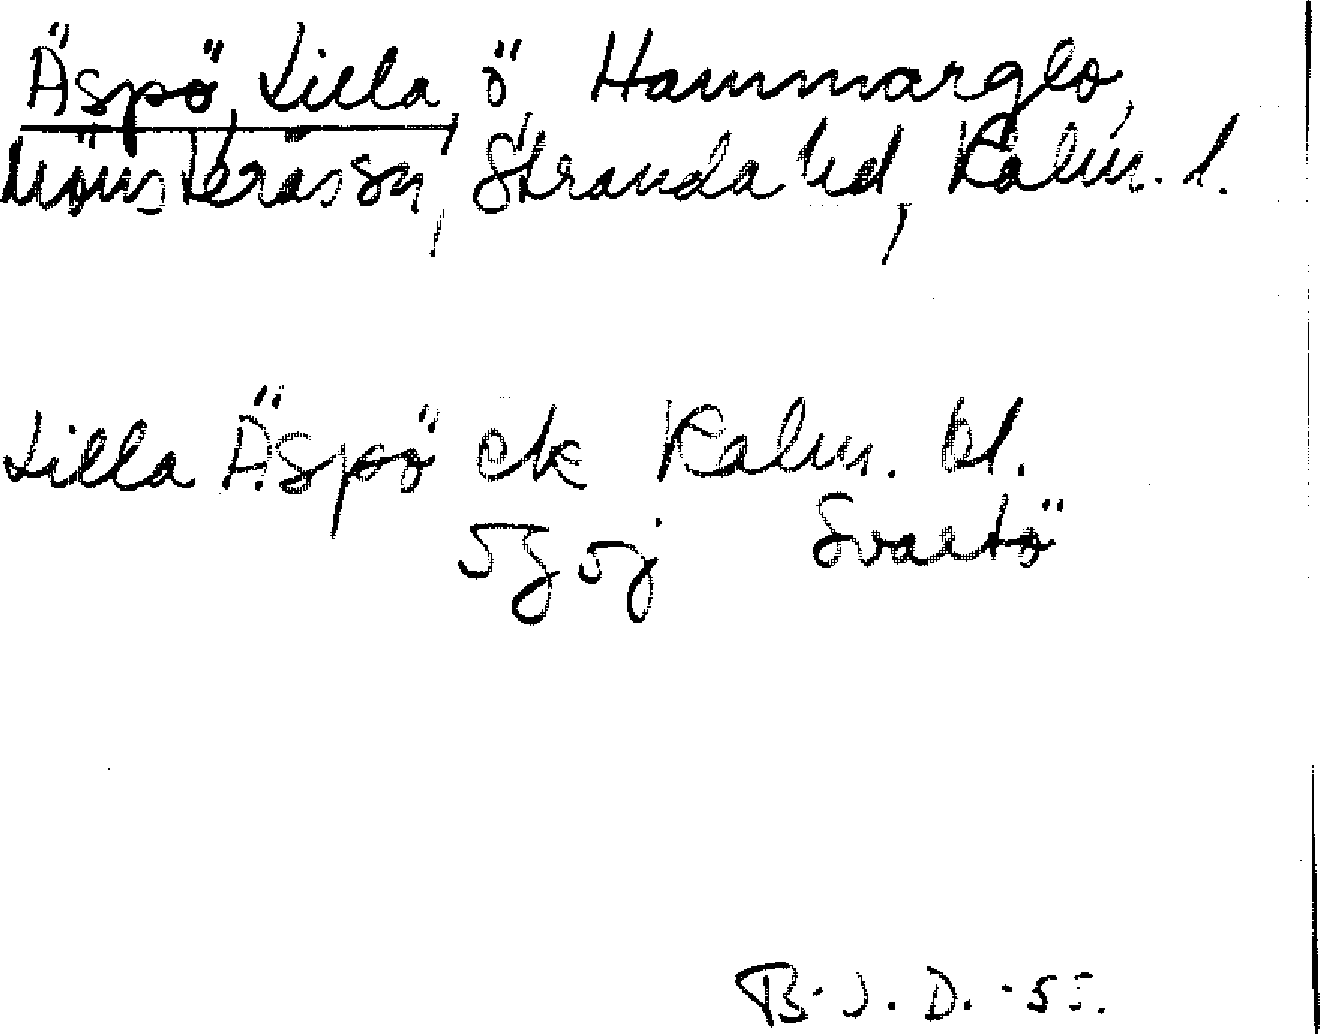 Äspö, Lilla, ö Hammarglo,
Mönsterås sn, Stranda hd, Kalm. l.
Lilla Äspö ek Kalm. bl.
5g5j Svartö
B.J.D. -55.